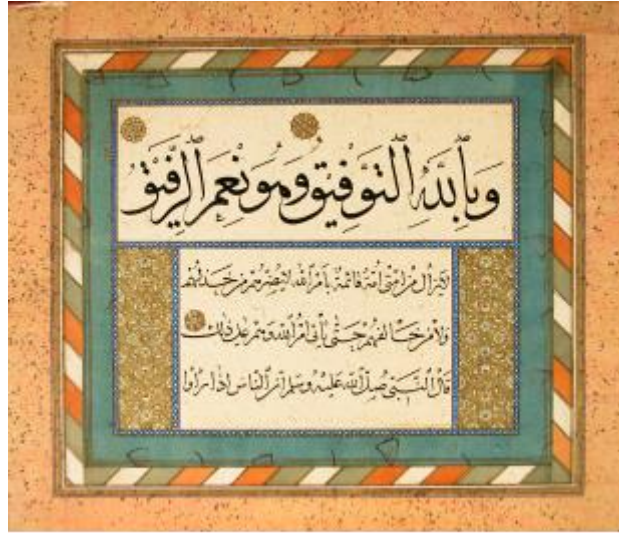 وَبِاللهِ التَّوْفِيقُ وَهُوَ نِعْمَ الرَّفِيقُ
لا يزال من امتي امة قائمة بامر الله لا يضرهم من خذلهم
ولا من خالفهم حتى ياتي امر الله وهم على ذلك
قال النبي صلى الله عليه وسلم ان الناس اذا راوا